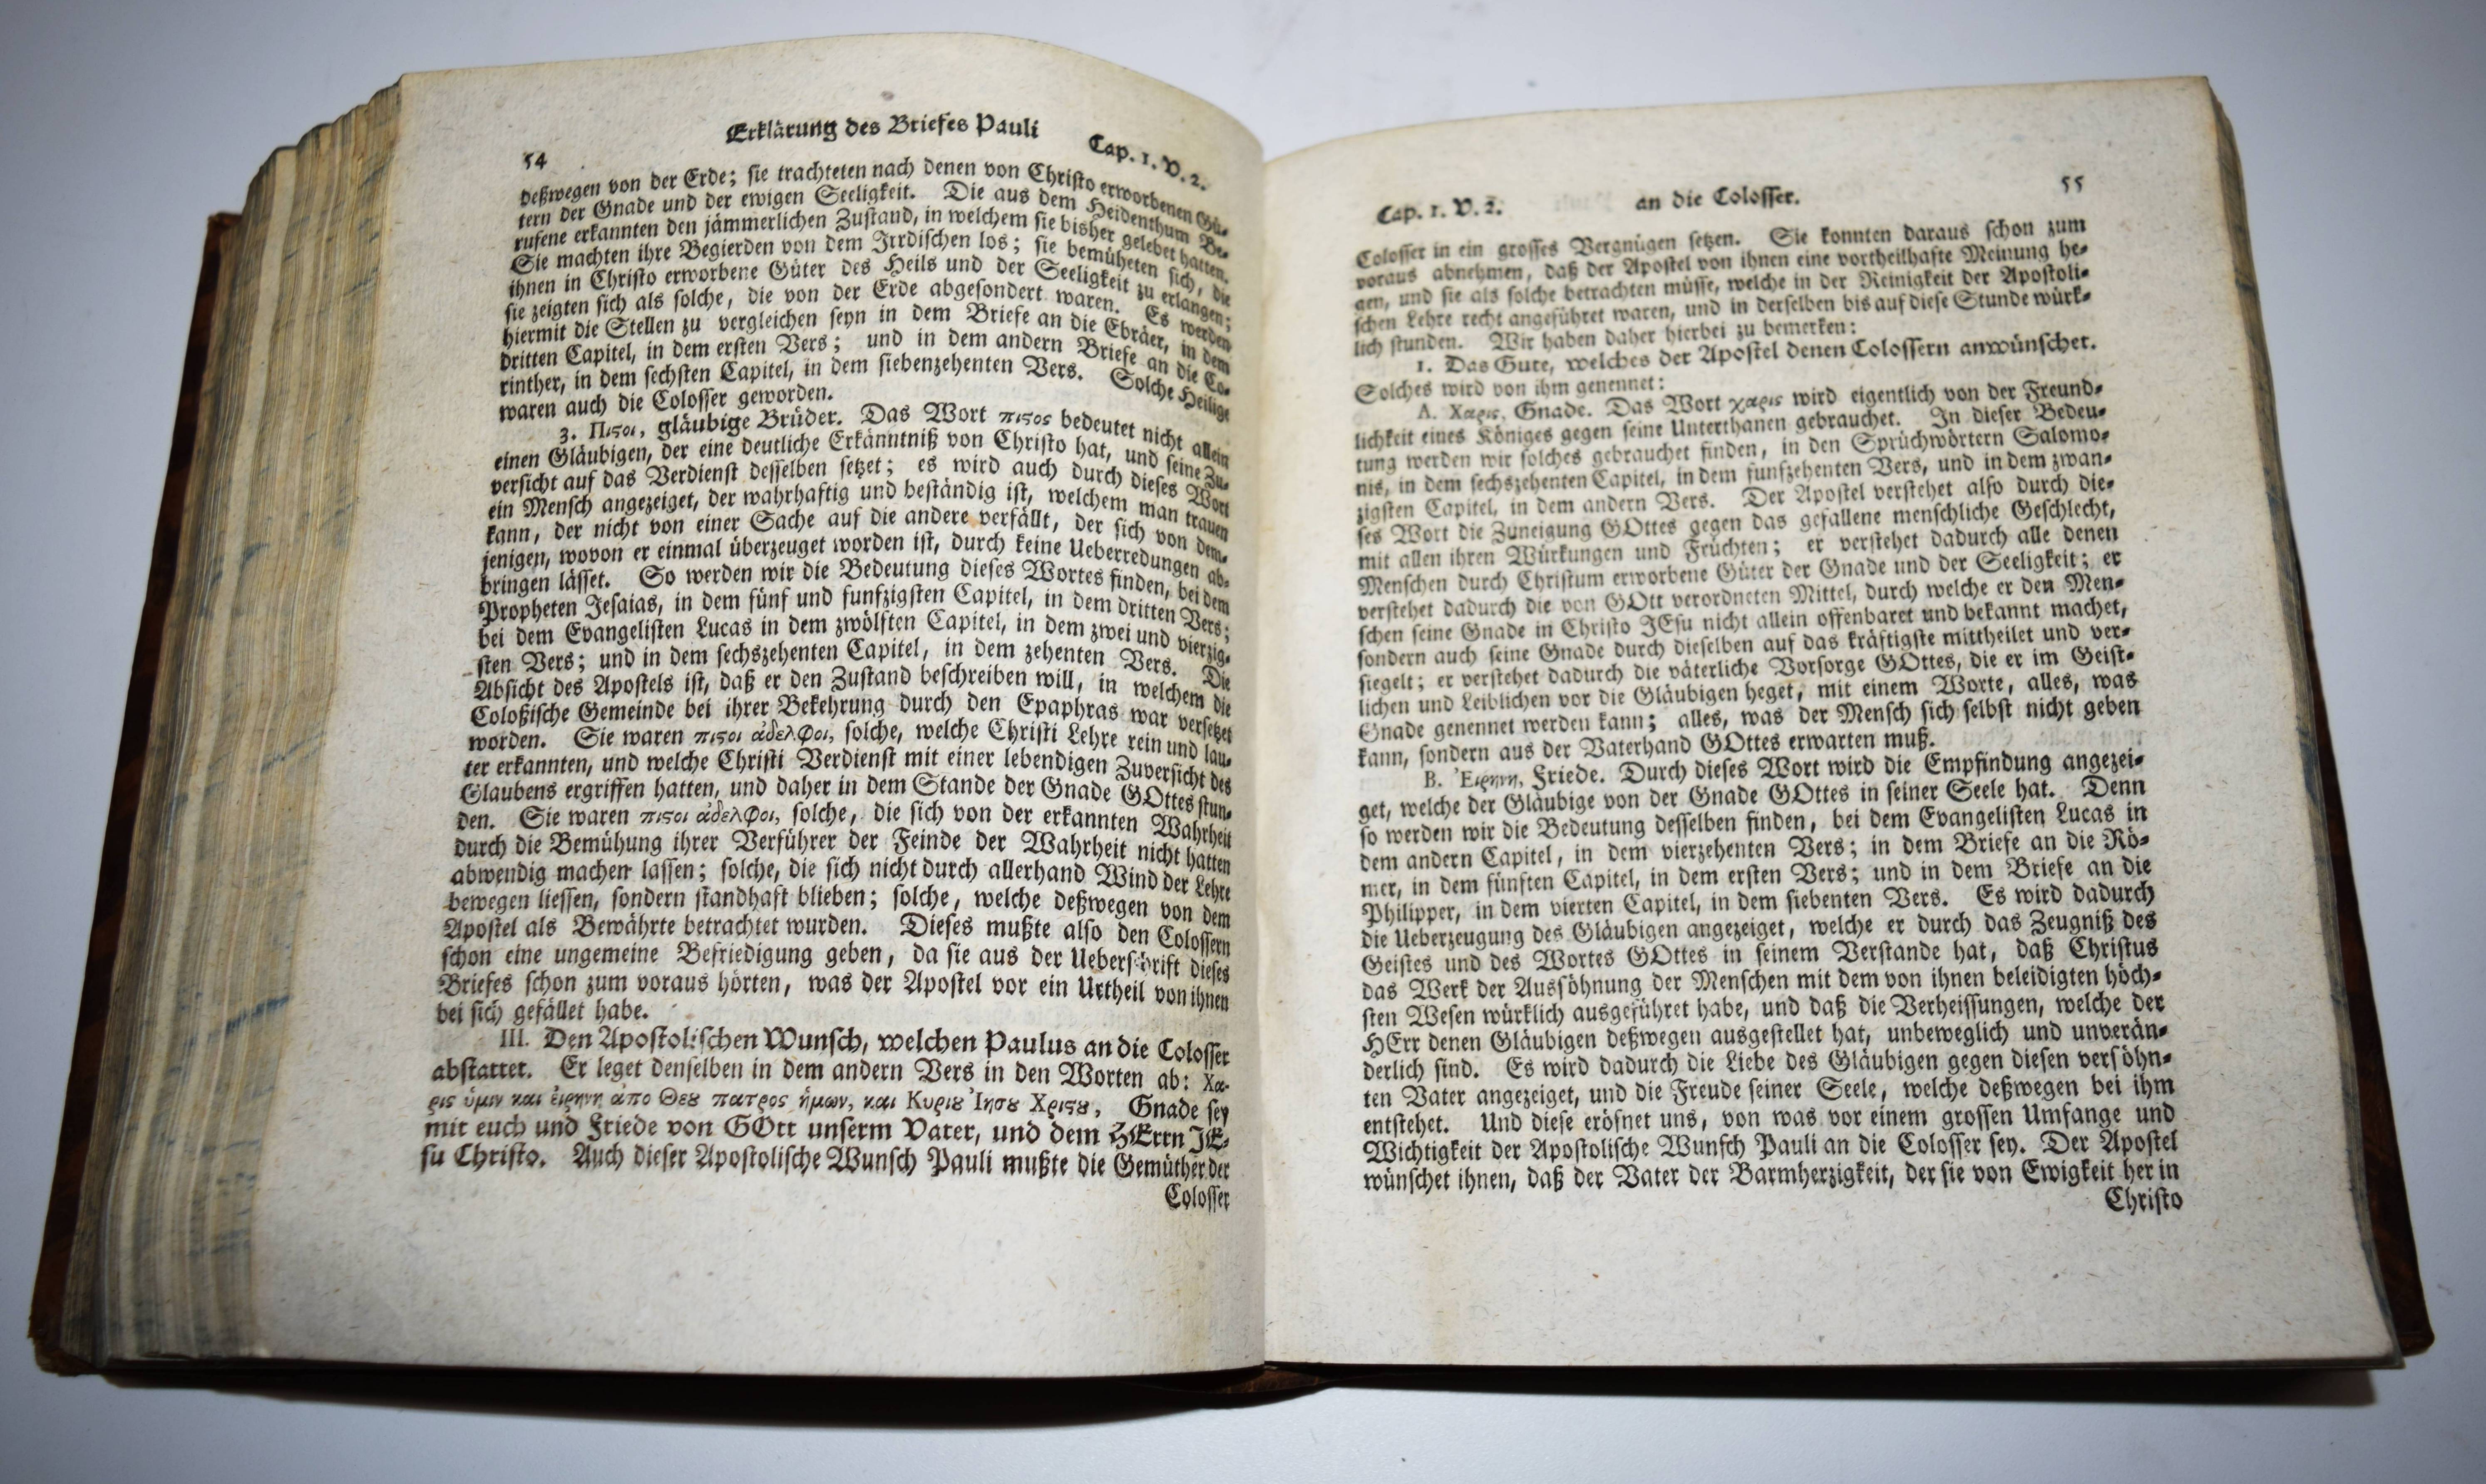 54
Erklärung des Briefes Pauli
Cap. 1. V. 2.
deßwegen von der Erde; sie trachteten nach denen von Christo erworbenen Gü-
tern der Gnade und der ewigen Seeligkeit. Die aus dem Heidenthum Be-
rufene erkannten den jämmerlichen Zustand, in welchem sie bisher gelebet hatten.
Sie machten ihre Begierden von dem Irrdischen los; sie bemüheten sich, die
ihnen in Christo erworbene Güter des Heils und der Seeligkeit zu erlangen;
sie zeigten sich als solche, die von der Erde abgesondert waren. Es werden
hiermit die Stellen zu vergleichen seyn in dem Briefe an die Ebräer, in dem
dritten Capitel, in dem ersten Vers; und in dem andern Briefe an die Co-
rinther, in dem sechsten Capitel, in dem siebenzehenten Vers. Solche Heilige
waren auch die Colosser geworden.
3. Πιϛοι, gläubige Brüder. Das Wort πιϛος bedeutet nicht allein
einen Gläubigen, der eine deutliche Erkänntniß von Christo hat, und seine Zu-
versicht auf das Verdienst desselben setzet; es wird auch durch dieses Wort
ein Mensch angezeiget, der wahrhaftig und beständig ist, welchem man trauen
kann, der nicht von einer Sache auf die andere verfällt, der sich von dem-
jenigen, wovon er einmal überzeuget worden ist, durch keine Ueberredungen ab-
bringen lässet. So werden wir die Bedeutung dieses Wortes finden, bei dem
Propheten Jesaias, in dem fünf und funfzigsten Capitel, in dem dritten Vers;
bei dem Evangelisten Lucas in dem zwölften Capitel, in dem zwei und vierzig-
sten Vers; und in dem sechszehenten Capitel, in dem zehenten Vers. Die
Absicht des Apostels ist, daß er den Zustand beschreiben will, in welchem die
Coloßische Gemeinde bei ihrer Bekehrung durch den Epaphras war versetzet
worden. Sie waren πιϛοι ἀδελφοι, solche, welche Christi Lehre rein und lau-
ter erkannten, und welche Christi Verdienst mit einer lebendigen Zuversicht des
Glaubens ergriffen hatten, und daher in dem Stande der Gnade GOttes stun-
den. Sie waren πιϛοι ἀδελφοι, solche, die sich von der erkannten Wahrheit
durch die Bemühung ihrer Verführer der Feinde der Wahrheit nicht hatten
abwendig machen lassen; solche, die sich nicht durch allerhand Wind der Lehre
bewegen liessen, sondern standhaft blieben; solche, welche deßwegen von dem
Apostel als Bewährte betrachtet wurden. Dieses mußte also den Colossern
schon eine ungemeine Befriedigung geben, da sie aus der Ueberschrift dieses
Briefes schon zum voraus hörten, was der Apostel vor ein Urtheil von ihnen
bei sich gefället habe.
III. Den Apostolischen Wunsch, welchen Paulus an die Colosser
abstattet. Er leget denselben in dem andern Vers in den Worten ab: Χα-
ρις ὑμιν και ἐιρηνη ἀπο Θεȣ πατρος ἡμων, και Κυριȣ Ἰησȣ Χριϛȣ, Gnade sey
mit euch und Friede von GOtt unserm Vater, und dem HErrn JE-
su Christo. Auch dieser Apostolische Wunsch Pauli mußte die Gemüther der
Colosser
Cap. 1. V. 2.
an die Colosser.
55
Colosser in ein grosses Vergnügen setzen. Sie konnten daraus schon zum
voraus abnehmen, daß der Apostel von ihnen eine vortheilhafte Meinung he-
gen, und sie als solche betrachten müsse, welche in der Reinigkeit der Apostoli-
schen Lehre recht angeführet waren, und in derselben bis auf diese Stunde würk-
lich stunden. Wir haben daher hierbei zu bemerken:
1. Das Gute, welches der Apostel denen Colossern anwünschet.
Solches wird von ihm genennet:
A. Χαρις, Gnade. Das Wort χαρις wird eigentlich von der Freund-
lichkeit eines Königes gegen seine Unterthanen gebrauchet. In dieser Bedeu-
tung werden wir solches gebrauchet finden, in den Sprüchwörtern Salomo-
nis, in dem sechszehenten Capitel, in dem funfzehenten Vers, und in dem zwan-
zigsten Capitel, in dem andern Vers. Der Apostel verstehet also durch die-
ses Wort die Zuneigung GOttes gegen das gefallene menschliche Geschlecht,
mit allen ihren Würkungen und Früchten; er verstehet dadurch alle denen
Menschen durch Christum erworbene Güter der Gnade und der Seeligkeit; er
verstehet dadurch die von GOtt verordneten Mittel, durch welche er den Men-
schen seine Gnade in Christo JEsu nicht allein offenbaret und bekannt machet,
sondern auch seine Gnade durch dieselben auf das kräftigste mittheilet und ver-
siegelt; er verstehet dadurch die väterliche Vorsorge GOttes, die er im Geist-
lichen und Leiblichen vor die Gläubigen heget, mit einem Worte, alles, was
Gnade genennet werden kann; alles, was der Mensch sich selbst nicht geben
kann, sondern aus der Vaterhand GOttes erwarten muß.
B. Ἐιρηνη, Friede. Durch dieses Wort wird die Empfindung angezei-
get, welche der Gläubige von der Gnade GOttes in seiner Seele hat. Denn
so werden wir die Bedeutung desselben finden, bei dem Evangelisten Lucas in
dem andern Capitel, in dem vierzehenten Vers; in dem Briefe an die Rö-
mer, in dem fünften Capitel, in dem ersten Vers; und in dem Briefe an die
Philipper, in dem vierten Capitel, in dem siebenten Vers. Es wird dadurch
die Ueberzeugung des Gläubigen angezeiget, welche er durch das Zeugniß des
Geistes und des Wortes GOttes in seinem Verstande hat, daß Christus
das Werk der Aussöhnung der Menschen mit dem von ihnen beleidigten höch-
sten Wesen würklich ausgeführet habe, und daß die Verheissungen, welche der
HErr denen Gläubigen deßwegen ausgestellet hat, unbeweglich und unverän-
derlich sind. Es wird dadurch die Liebe des Gläubigen gegen diesen versöhn-
ten Vater angezeiget, und die Freude seiner Seele, welche deßwegen bei ihm
entstehet. Und diese eröfnet uns, von was vor einem grossen Umfange und
Wichtigkeit der Apostolische Wunsch Pauli an die Colosser sey. Der Apostel
wünschet ihnen, daß der Vater der Barmherzigkeit, der sie von Ewigkeit her in
Christo